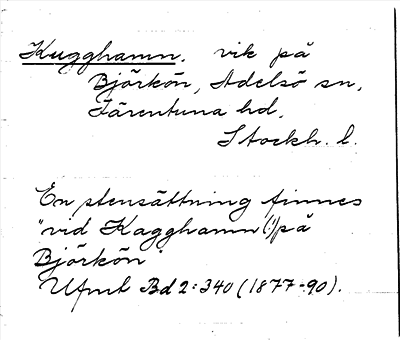 Kugghamn. vik på
Björkön, Adelsö sn,
Färentuna hd,
Stockh. l.
En stensättning finnes
"vid Kagghamn(!) på
Björkön".
Ufmt Bd 2:340 (1877-90).